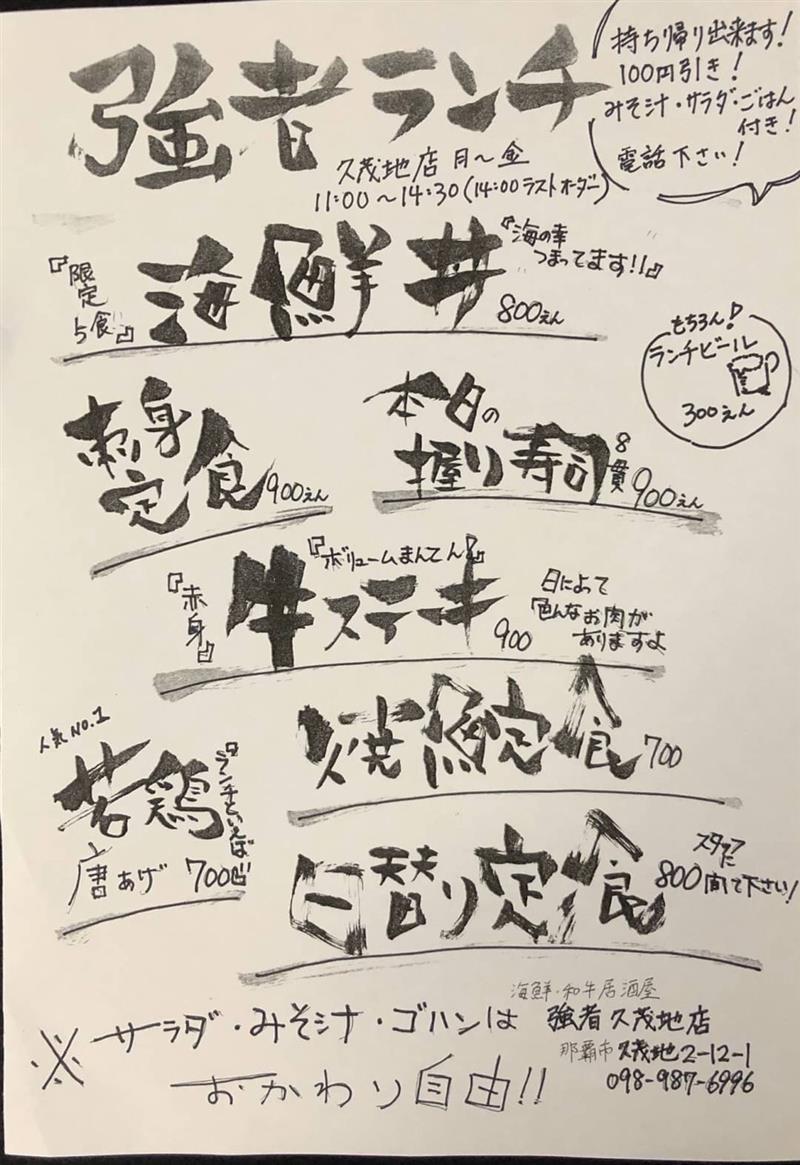 強者ランチ
持ち帰り出来ます!
100円引き!
みそ汁・サラダ・ごはん
付き!
電話下さい!
久茂地店 月〜金
11:00〜14:30(14:00ラストオーダー)
『限定
5食』
海鮮丼
800えん
『海の幸
つまってます!!』
もちろん!
ランチビール
300えん
刺身
定食
900えん
本日の
握り寿司
8貫
900えん
『赤身』
牛ステーキ
『ボリュームまんてん!』
900
日によって
色んなお肉が
ありますよ
人気NO.1
若鶏
唐あげ
700
『ランチといえば!!』
焼鮭定食
700
日替り定食
800
スタッフに
聞いて下さい!
※サラダ・みそ汁・ゴハンは
おかわり自由!!
海鮮・和牛居酒屋
強者久茂地店
那覇市久茂地2-12-1
098-987-6996